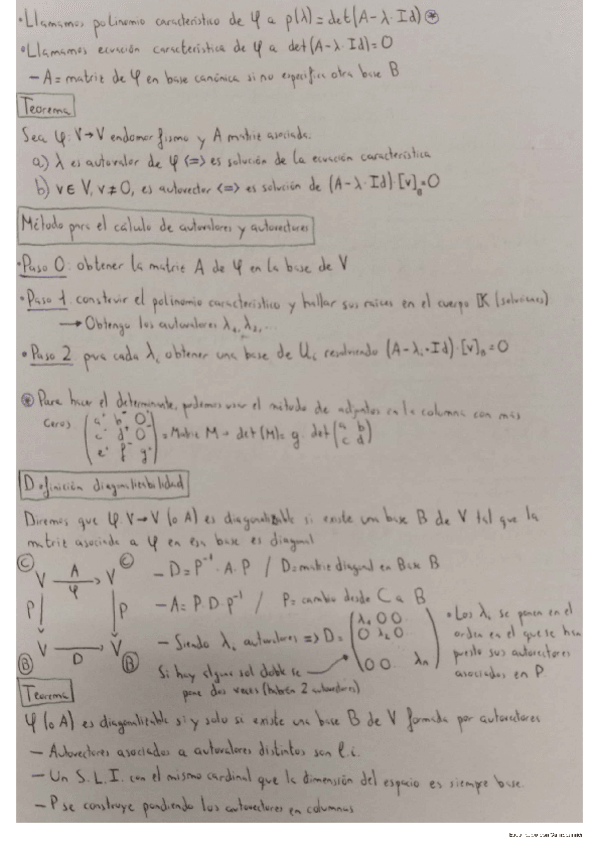 • Llamamos polinomio característico de φ a p(λ) = det(A-λ·Id) ⊛
• Llamamos ecuación característica de φ a det(A-λ·Id)=0
- A = matriz de φ en base canónica si no especifica otra base B
Teorema
Sea φ: V→V endomorfismo y A matriz asociada.
a) λ es autovalor de φ <=> es solución de la ecuación característica
b) v∈V, v≠0, es autovector <=> es solución de (A-λ·Id)·[v]_B=0
Método para el cálculo de autovalores y autovectores
• Paso 0: obtener la matriz A de φ en la base de V
• Paso 1: construir el polinomio característico y hallar sus raíces en el cuerpo K (soluciones)
→ Obtengo los autovalores λ₁, λ₂, ...
• Paso 2 para cada λi obtener una base de Ui resolviendo (A-λi·Id)·[v]_B=0
⊛ Para hacer el determinante, podemos usar el método de adjuntos en la columna con más
ceros (a b 0
c d 0
e f g) = Matriz M → det(M) = g · det(a b
c d)
Definición diagonalizabilidad
Diremos que φ: V→V (o A) es diagonalizable si existe una base B de V tal que la
matriz asociada a φ en esa base es diagonal
C V A→ φ V C
P↓ ↓P
B V → D V B
- D = P⁻¹·A·P / D = matriz diagonal en Base B
- A = P·D·P⁻¹ / P = cambio desde C a B
- Siendo λi autovalores => D = (λ₁ 0 0
0 λ₂ 0
0 0 ... λn)
• Los λi se ponen en el
orden en el que se han
puesto sus autovectores
asociados en P.
Si hay alguna sol doble se
pone dos veces (habrán 2 autovectores)
Teorema
φ (o A) es diagonalizable si y solo si existe una base B de V formada por autovectores
- Autovectores asociados a autovalores distintos son l.i.
- Un S.L.I. con el mismo cardinal que la dimensión del espacio es siempre base.
- P se construye poniendo los autovectores en columnas